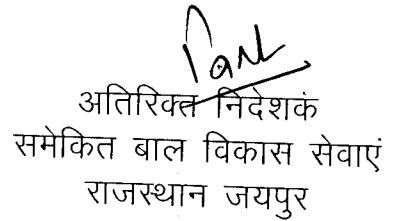 अतिरिक्त निदेशकं
समेकित बाल विकास सेवाएं
राजस्थान जयपुर